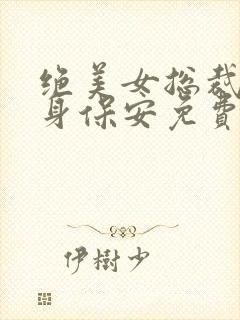 绝美女总裁
身保安免費
伊樹少